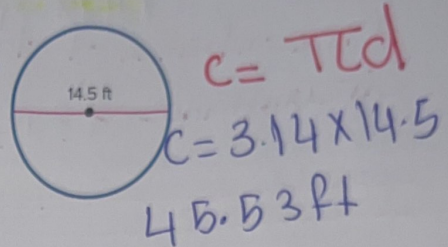 14.5 ft
C = πd
C = 3.14 × 14.5
45.53 ft